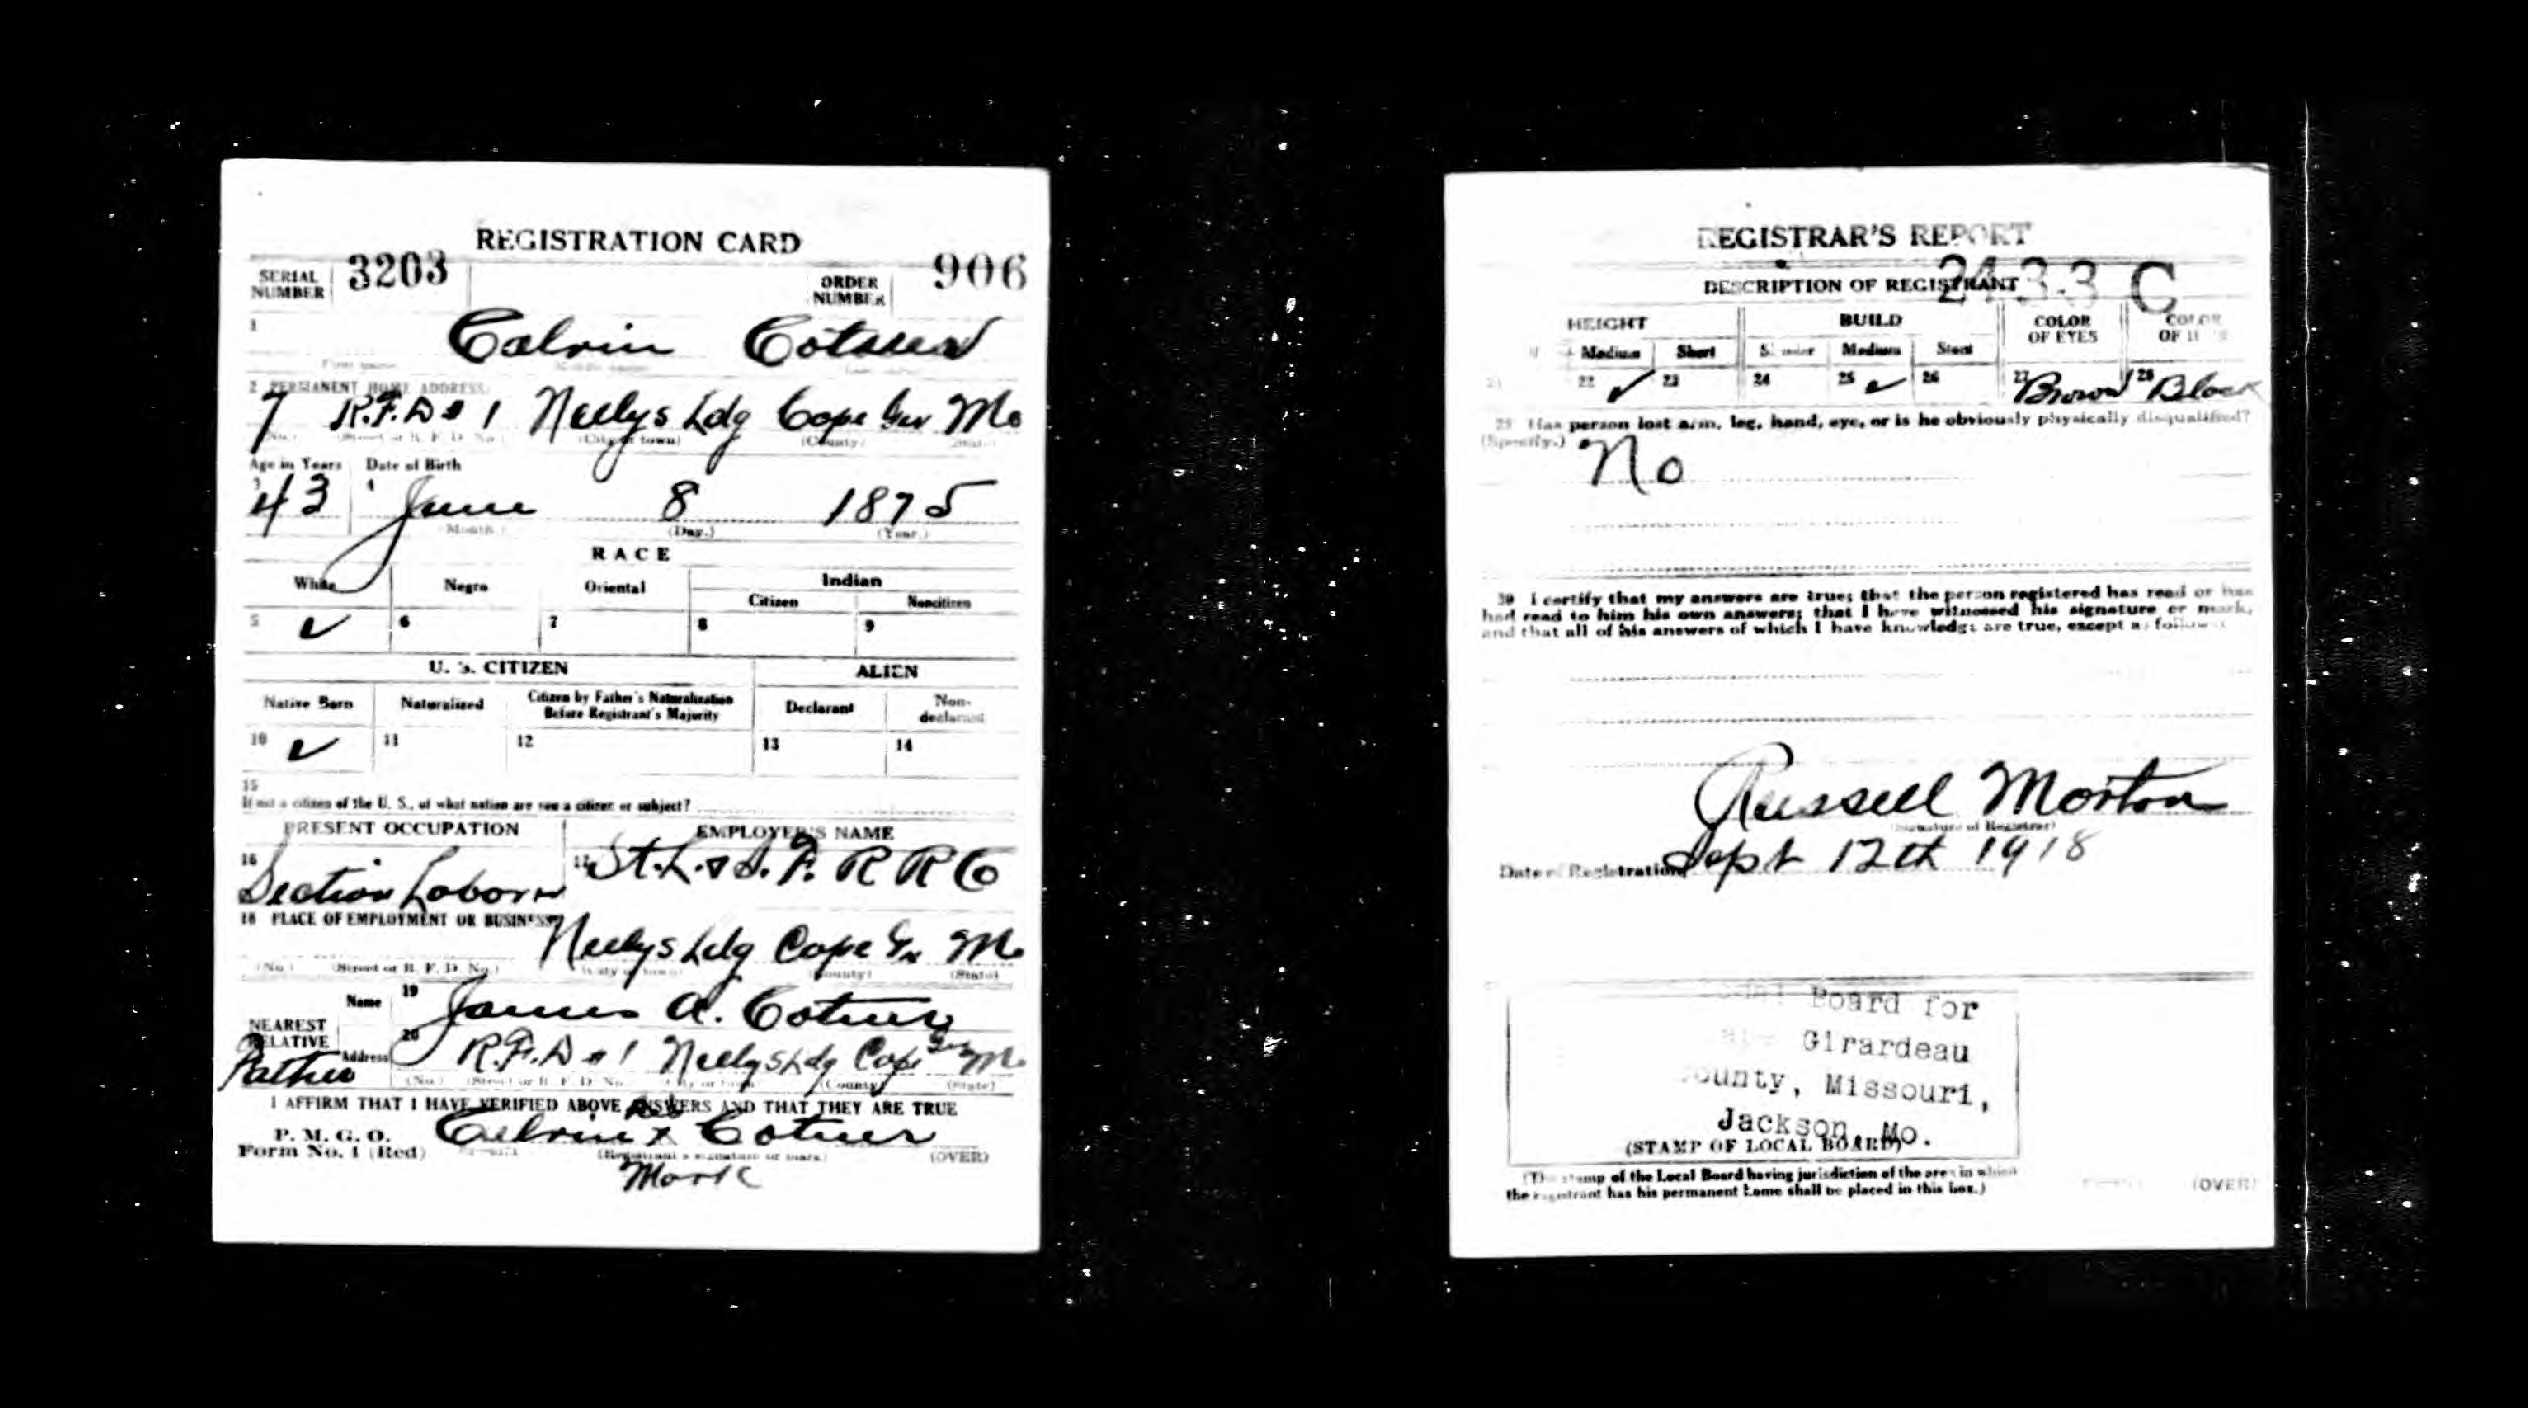 REGISTRATION CARD
SERIAL NUMBER 3203 ORDER NUMBER 906
1 Calvin Cotner
First name Middle name Last name
2 PERMANENT HOME ADDRESS:
7 R.F.D # 1 Neelys Ldg Cape Gir Mo
(No.) (Street or R. F. D. No.) (City or town) (County) (State)
Age in Years Date of Birth
3 43 4 June 8 1875
(Month.) (Day.) (Year.)
RACE
White Negro Oriental Indian
Citizen Noncitizen
5 ✓ 6 7 8 9
U. S. CITIZEN ALIEN
Native Born Naturalized Citizen by Father's Naturalization Before Registrant's Majority Declarant Non-declarant
10 ✓ 11 12 13 14
15
If not a citizen of the U. S., of what nation are you a citizen or subject?
PRESENT OCCUPATION EMPLOYER'S NAME
16 Section Labor 17 St. L. & S. F. R R Co
18 PLACE OF EMPLOYMENT OR BUSINESS
Neelys Ldg Cape Gir Mo
(No.) (Street or R. F. D. No.) (City or town) (County) (State)
NEAREST RELATIVE Name 19 James A. Cotner
Father Address 20 R.F.D # 1 Neelys Ldg Cape Gir Mo
(No.) (Street or R. F. D. No.) (City or town) (County) (State)
I AFFIRM THAT I HAVE VERIFIED ABOVE ANSWERS AND THAT THEY ARE TRUE
P. M. G. O.
Form No. 1 (Red)
his
Calvin x Cotner
(Registrant's signature or mark) (OVER)
Mark
REGISTRAR'S REPORT
24-3-3 C
DESCRIPTION OF REGISTRANT
HEIGHT BUILD COLOR OF EYES COLOR OF
Medium Short Slender Medium Stout
21 22 ✓ 23 24 25 ✓ 26 27 Brown 28 Black
29 Has person lost arm, leg, hand, eye, or is he obviously physically disqualified?
(Specify.) No
30 I certify that my answers are true; that the person registered has read or has
had read to him his own answers; that I have witnessed his signature or mark,
and that all of his answers of which I have knowledge are true, except as follows:
Russell Morton
(Signature of Registrar)
Date of Registration Sept 12th 1918
Local Board for
Cape Girardeau
County, Missouri,
Jackson, Mo.
(STAMP OF LOCAL BOARD)
(The stamp of the Local Board having jurisdiction of the area in which
the registrant has his permanent home shall be placed in this box.)
(OVER)